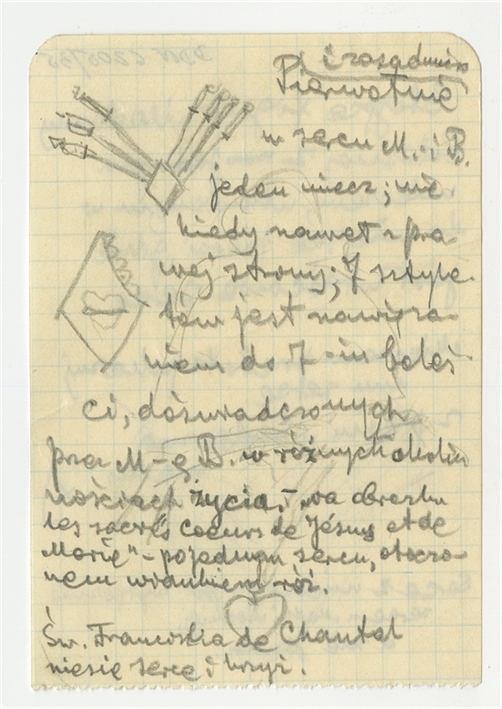 i zasadniczo
Pierwotnie
w sercu M. i B.
jeden miecz; nie
kiedy nawet z pra
wej strony; 7 sztyle
tów jest nawiąza
niem do 7-iu boleś
ci, doświadczonych
przez M-ę B. w różnych okolicz
nościach życia. na obrazku
les sacrés coeurs de Jésus et de
Marie" - po jednym sercu, otoczo
nem wiankiem róż.
Św. Franciszka de Chantal
niesie serce i krzyż.